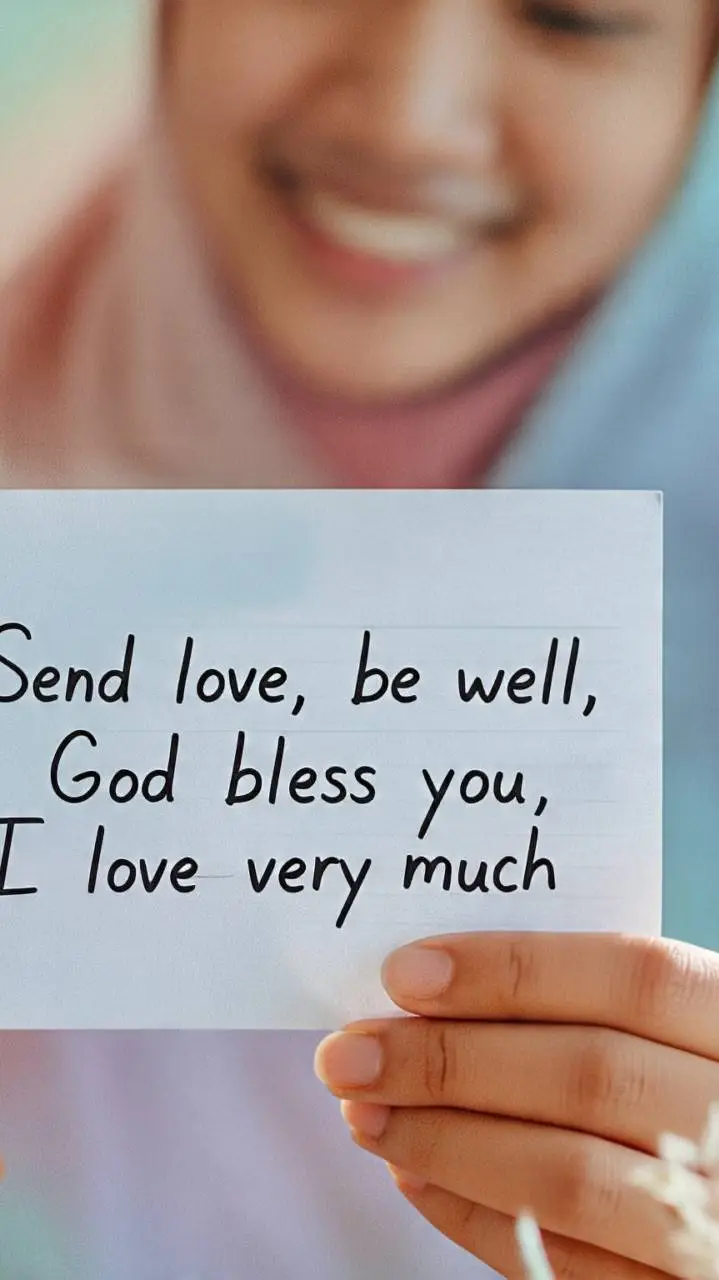 Send love, be well,
God bless you,
I love very much